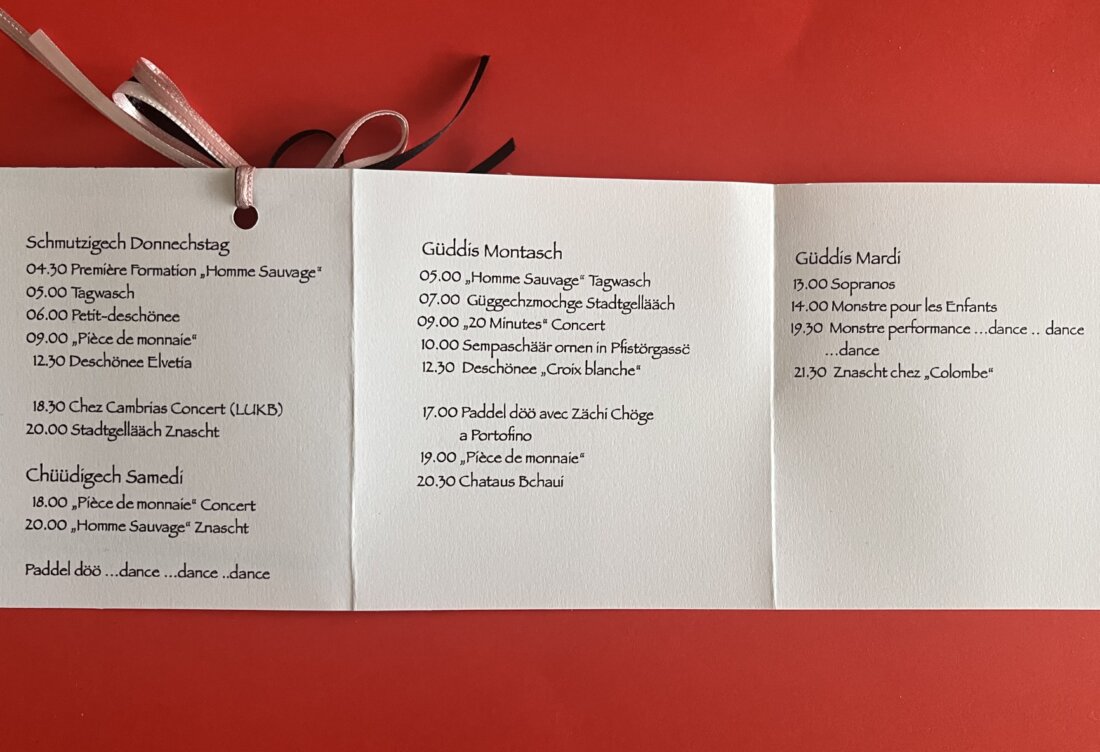 Schmutzigech Donnechstag
04.30 Première Formation „Homme Sauvage“
05.00 Tagwasch
06.00 Petit-deschönee
09.00 „Pièce de monnaie“
12.30 Deschönee Elvetia
18.30 Chez Cambrias Concert (LUKB)
20.00 Stadtgellääch Znascht
Chüüdigech Samedi
18.00 „Pièce de monnaie“ Concert
20.00 „Homme Sauvage“ Znascht
Paddel döö ...dance ...dance ..dance
Güddis Montasch
05.00 „Homme Sauvage“ Tagwasch
07.00 Güggechzmochge Stadtgellääch
09.00 „20 Minutes“ Concert
10.00 Sempaschäär ornen in Pfistörgassö
12.30 Deschönee „Croix blanche“
17.00 Paddel döö avec Zächi Chöge
a Portofino
19.00 „Pièce de monnaie“
20.30 Chataus Bchaui
Güddis Mardi
13.00 Sopranos
14.00 Monstre pour les Enfants
19.30 Monstre performance ...dance .. dance
...dance
21.30 Znascht chez „Colombe“